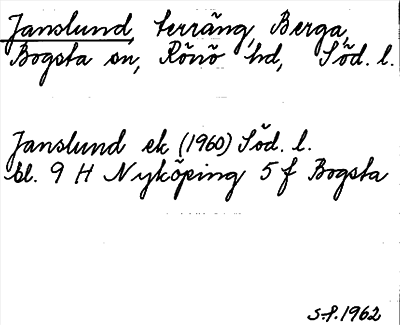 Janslund, terräng, Berga,
Bogsta sn, Rönö hd, Söd. l.
Janslund ek (1960) Söd. l.
bl. 9 H Nyköping 5 f Bogsta
S.F. 1962